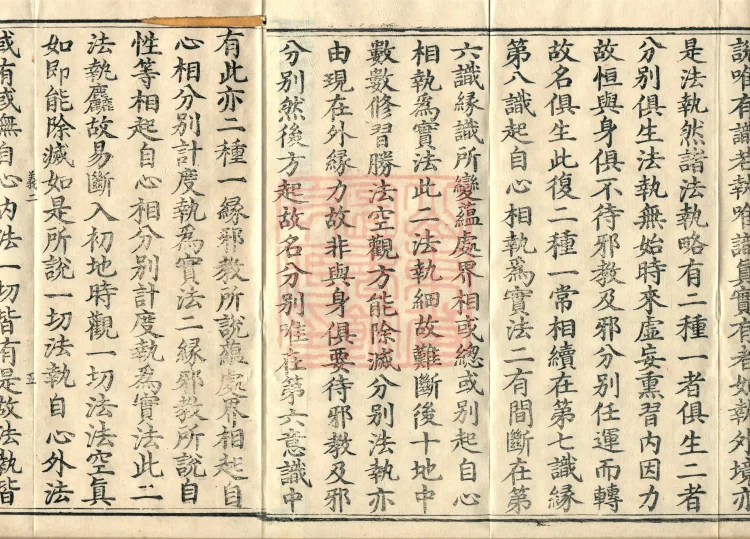 說唯有識者執唯識真實有者如執外境亦
是法執然諸法執略有二種一者俱生二者
分別俱生法執無始時來虛妄熏習内因力
故恒與身俱不待邪教及邪分別任運而轉
故名俱生此復二種一常相續在第七識緣
第八識起自心相執爲實法二有間斷在第
六識緣識所變蘊處界相或總或別起自心
相執爲實法此二法執細故難斷後十地中
數數修習勝法空觀方能除滅分別法執亦
由現在外緣力故非與身俱要待邪教及邪
分別然後方起故名分別唯在第六意識中
有此亦二種一緣邪教所說蘊處界相起自
心相分別計度執爲實法二緣邪教所說自
性等相起自心相分別計度執爲實法此二
法執麤故易斷入初地時觀一切法法空眞
如即能除滅如是所說一切法執自心外法
義二 五
或有或無自心内法一切皆有是故法執皆